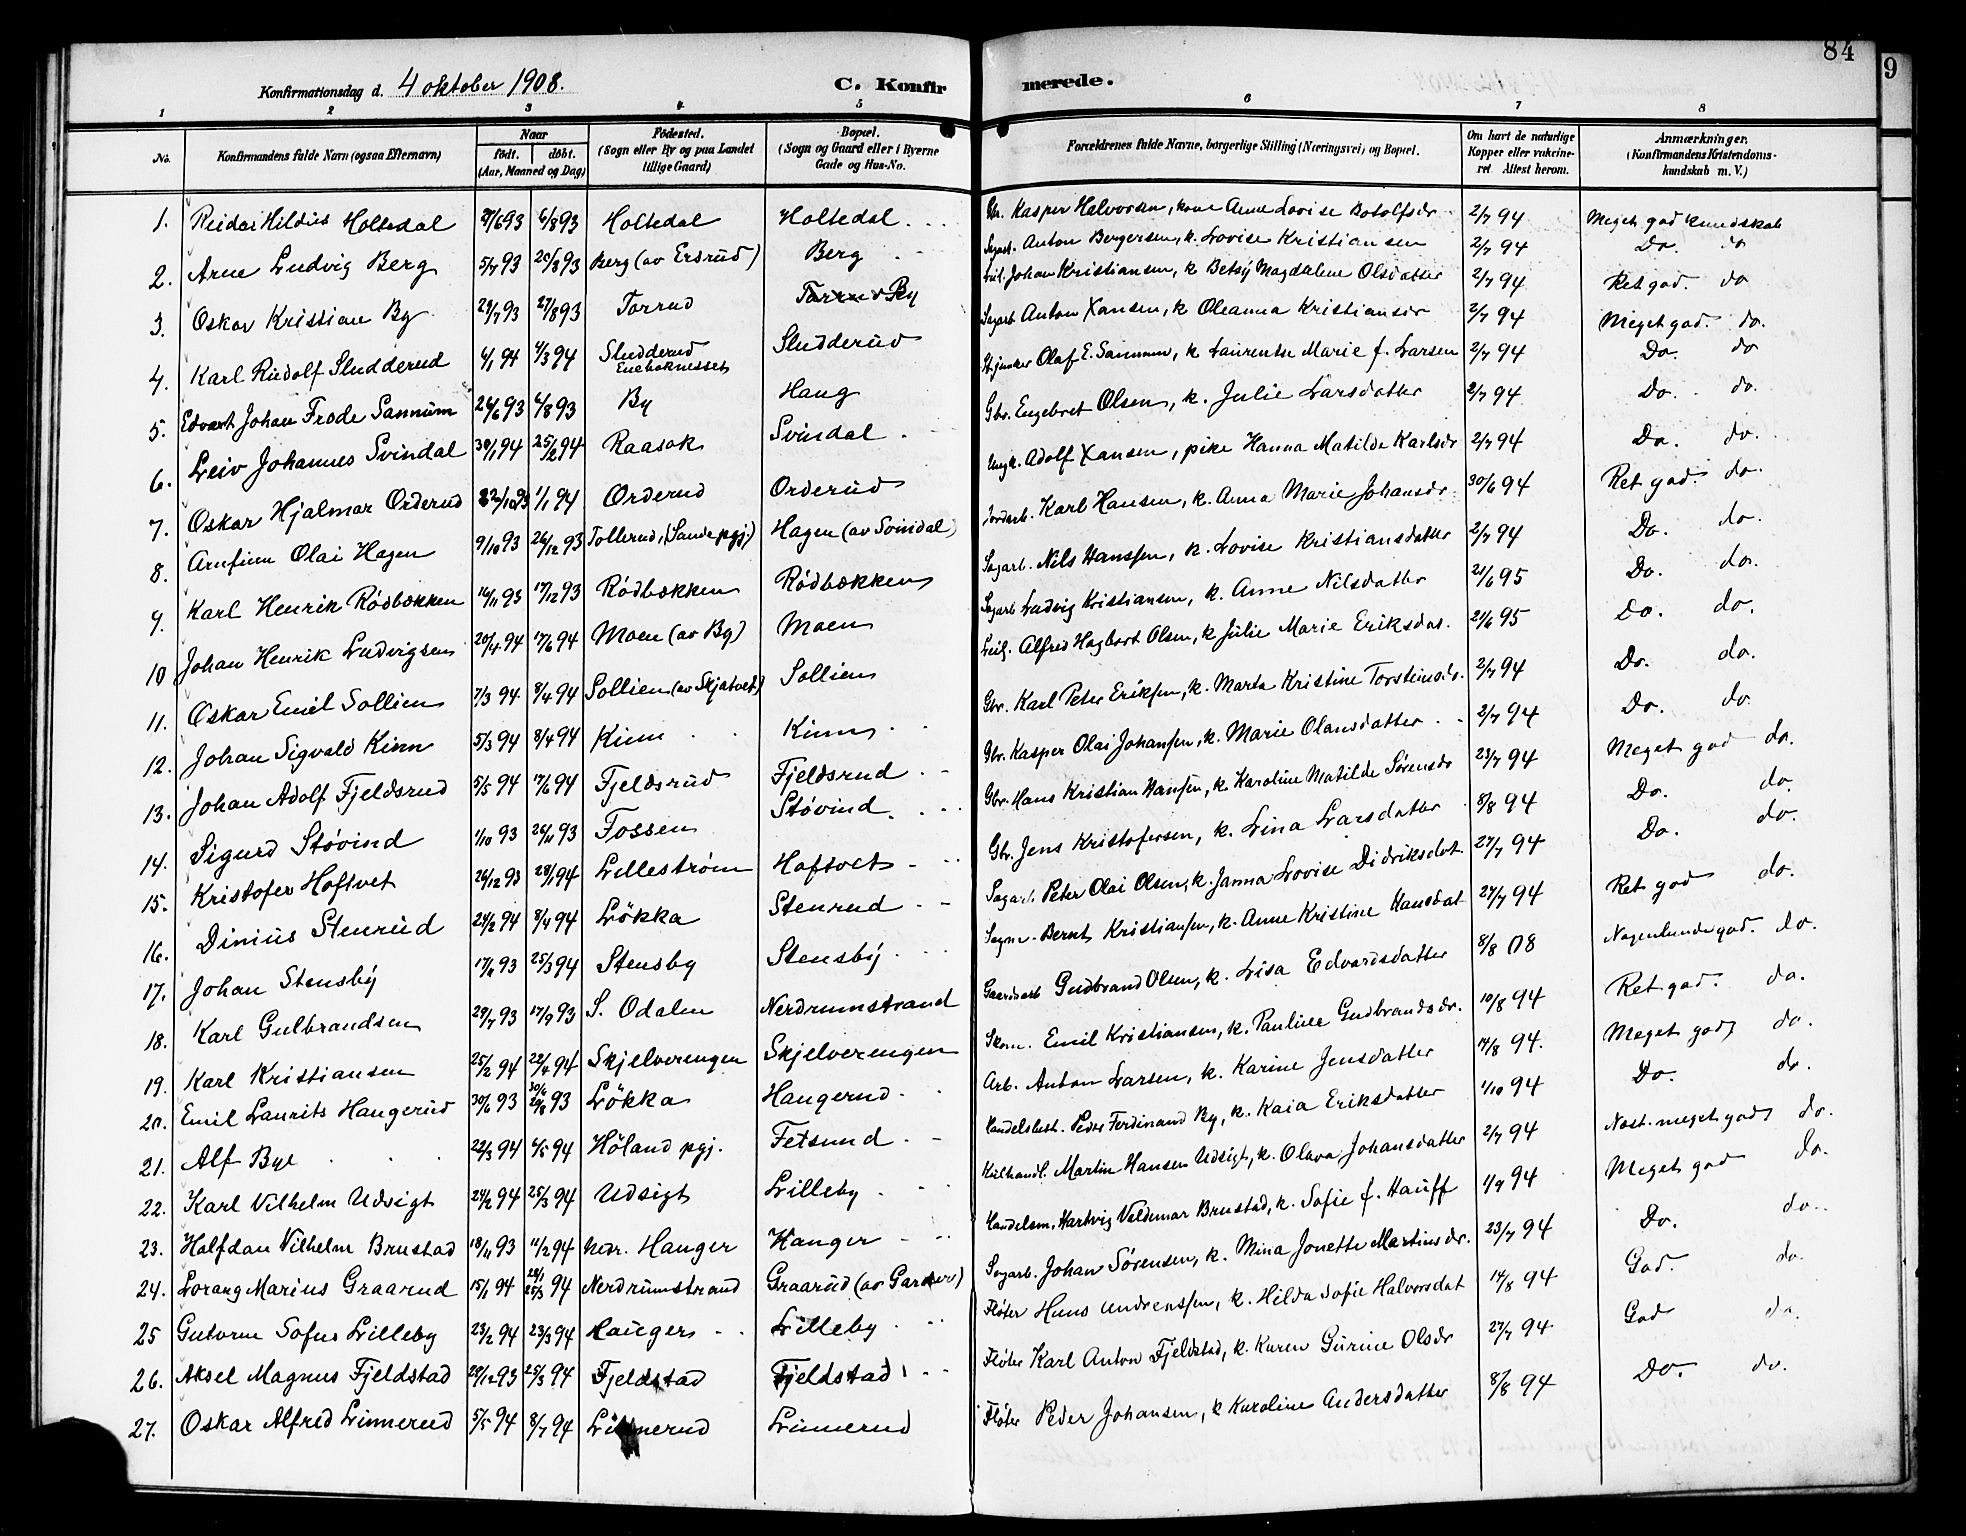 84
9
Konfirmationsdag d. 4 oktober 1908. C. Konfirmerede.
1 2 3 4 5 6 7 8
No. Konfirmandens fulde Navn (ogsaa Efternavn) Naar født. døbt. (Aar, Maaned og Dag) Fødested. (Sogn eller By og paa Landet tillige Gaard) Bopæl. (Sogn og Gaard eller i Byerne Gade og Hus-No. Forældrenes fulde Navne, borgerlige Stilling (Næringsvei) og Bopæl. Om havt de naturlige Kopper eller vakcineret Attest herom. Anmærkninger. (Konfirmandens Kristendomskundskab m. V.)
1. Reidar Hildius Holtedal 6/8 93 Holtedal Holtedal Kasper Halvorsen, kone Anne Lovise Botolfsdr. 2/7 94 Meget god kundskab
2. Arne Ludvig Berg 5/7 93 20/8 93 Berg (av Erdrud) Berg Sagarb. Anton Bergersen, k. Lovise Kristiansen 2/7 94 Do. do
3. Oskar Kristian By 29/7 93 27/8 93 Torrud By Johan Kristiansen, k Betsy Magdalene Olsdatter 2/7 94 Ret god. do
4. Karl Rudolf Sludderud 6/1 94 4/3 94 Sludderud Enebaknesset Sludderud Sagarb. Anton Xansen, k Oleanna Kristiansdr 2/7 94 Meget god. do.
5. Edvart Johan Frode Sannum 26/6 93 6/8 93 By Haug Olaf E. Sannum, k Laurentse Marie f. Larsen 2/7 94 Do. do
6. Leiv Johannes Svindal 30/1 94 25/2 94 Raasok Svindal Gbr. Engebret Olsen, k. Julie Larsdatter 2/7 94 Do. do.
7. Oskar Hjalmar Orderud 1/1 94 Orderud Orderud Ungk. Adolf Xansen, pike Hanna Matilde Karlsdr 2/7 94 Do. do.
8. Arnfinn Olai Hagen 9/10 93 26/12 93 Tollerud, (Sande pgj.) Hagen (av Svindal) Jordarb. Karl Hansen, k. Anna Marie Johansdr 30/6 94 Ret god. do.
9. Karl Henrik Rødbækken 16/11 93 17/12 93 Rødbækken Rødbækken Sagarb. Nils Hanssen, k. Lovise Kristiansdatter 2/7 94 Do. do.
10 Johan Henrik Ludvigsen 20/4 94 17/6 94 Moen (av By) Moen Sagarb Ludvig Kristiansen, k. Anne Nilsdatter 21/6 95 Do. do.
11. Oskar Emil Sollien 7/3 94 8/4 94 Sollien (av Skjatvet) Sollien Leil. Alfred Hagbart Olsen, k Julie Marie Eriksdat. 21/6 95 Do. do.
12. Johan Sigvald Kinn 5/3 94 8/4 94 Kinn Kinn Gbr. Karl Peter Eriksen, k. Marta Kristine Torsteinsdr. 2/7 94 Do. do.
13. Johan Adolf Fjeldsrud 5/5 94 17/6 94 Fjeldsrud Fjeldsrud Gbr. Kasper Olai Johansen, k. Marie Olausdatter 2/7 94 Do. do.
14. Sigurd Støvind 1/10 93 26/11 93 Fossen Støvind Gbr. Hans Kristian Hansen, k. Karoline Matilde Sørensdr 23/7 94 Meget god do.
15. Kristofer Hoftvet 26/12 93 28/1 94 Lillestrøm Hoftvet Gbr. Jens Kristofersen, k. Lina Larsdatter 8/8 94 Do. do.
16. Dinius Stenrud 24/2 94 8/4 94 Løkka Stenrud Sagarb. Peter Olai Olsen, k. Janna Lovise Didriksdat. 27/7 94 Do. do.
17. Johan Stensby 93 25/3 94 Stensby Stensby Bernt Kristiansen, k. Anne Kristine Hansdat 27/7 94 Ret god do.
18. Karl Gulbrandsen 29/7 93 17/9 93 S. Odalen Nerdrumstrand Gaardsarb Gudbrand Olsen, k. Lisa Edvardsdatter 8/8 08 Nogenlunde god. do.
19. Karl Kristiansen 25/2 94 22/4 94 Skjelverengen Skjelverengen Skom. Emil Kristiansen, k. Pauline Gudbrandsdr. 10/8 94 Ret god. do.
20. Emil Laurits Haugerud 30/6 93 93 Løkka Haugerud Arb. Anton Larsen, k. Karine Jensdatter 14/8 94. Meget god do.
21. Alf Bye 22/3 94 6/5 94 Høland pgj. Fetsund Handelsbest. Peder Ferdinand By, k. Kaia Eriksdatter 1/10 94 Do. do.
22. Karl Vilhelm Udsigt 24/2 94 25/3 94 Udsigt Lilleby Kulhandl. Martin Hansen Udsigt, k. Olava Johansdatter 2/7 94 Næst. meget god do.
23. Halfdan Vilhelm Brustad 18/11 93 11/2 94 Nedr. Hauger Hauger Handelsm. Hartvig Valdemar Brustad, k. Sofie f. Hauff 1/9 94 Meget god do.
24. Lorang Marius Graarud 15/1 94 28/1 25/3 94 Nerdrumstrand Graarud (av Garder) Sagarb. Johan Sørensen, k. Mina Jonette Martinsdr. 23/7 94 Do. do.
25 Gutorm Sofus Lilleby 23/2 94 23/3 94 Hauger Lilleby Fløter Hans Andreassen, k. Hilda Sofie Halvorsdat 14/8 94 God. do.
26. Aksel Magnus Fjeldstad 29/12 93 25/3 94 Fjeldstad Fjeldstad Fløter Karl Anton Fjeldstad, k. Karen Gurine Olsdr 27/7 94 God do.
27. Oskar Alfred Linnerud 5/5 94 8/7 94 Linnerud Linnerud Fløter Peder Johansen, k Karoline Andersdatter 8/8 94 Do. do.